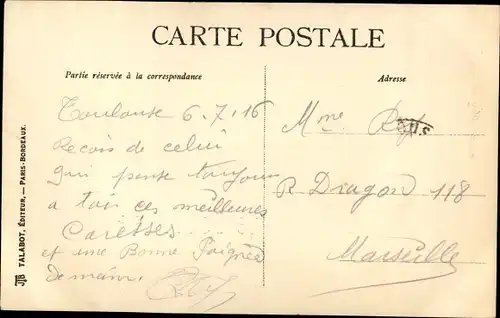 CARTE POSTALE
Partie réservée à la correspondance
Adresse
Toulouse 6.7.16
Recois de celui
qui pense toujours
a toi ces meilleures
Caresses
et une Bonne Poignée
de main
Mme
R Dragon 118
Marseille
JTB TALABOT, ÉDITEUR, — PARIS-BORDEAUX.